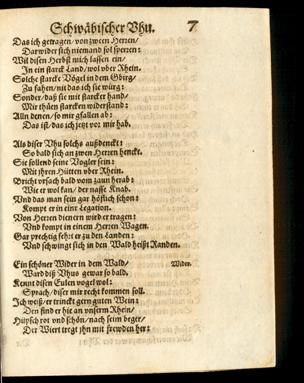 Schwäbischer Vhu. 7
Das ich getragen/von zween Herren/
Darwider sich niemand sol sperren:
Wil disen Herbst mich lassen ein/
In ein starck Land/wol vber Rhein.
Solche starcke Vögel in dem Gbirg/
Zu fahen/nit das ich sie würg:
Sonder/daß sie mit starcker hand/
Mir thüen starcken widerstand:
Alln denen/so mir gfallen ab:
Das ist/das ich jetzt vor mir hab.
Als diser Vhu solchs außdenckt:
So bald sich an zwen Herren henckt.
Sie sollend seine Vogler sein:
Mit jhren Hütten vber Rhein.
Bricht vrsach bald vom zaun herab:
Wie er wol kan/der nasse Knab.
Vnd das man sein gar höflich schon:
Kompt er in eine Legation.
Von Herren dienern wird er tragen:
Vnd kompt in einem Herren Wagen.
Gar prechtig fehrt er zu den Landen:
Vnd schwingt sich in den Wald heißt Randen.
Ein schöner Wider in dem Wald/ Wider.
Ward diß Vhus gewar so bald.
Kennt disen Eulen vogel wol:
Sprach/diser mir recht kommen soll.
Ich weiß/er trinckt gern guten Wein:
Den find er hie an vnserm Rhein/
Hüpsch rot vnd schön/nach seim beger/
Der Wiert tregt jhn mit frewden her: